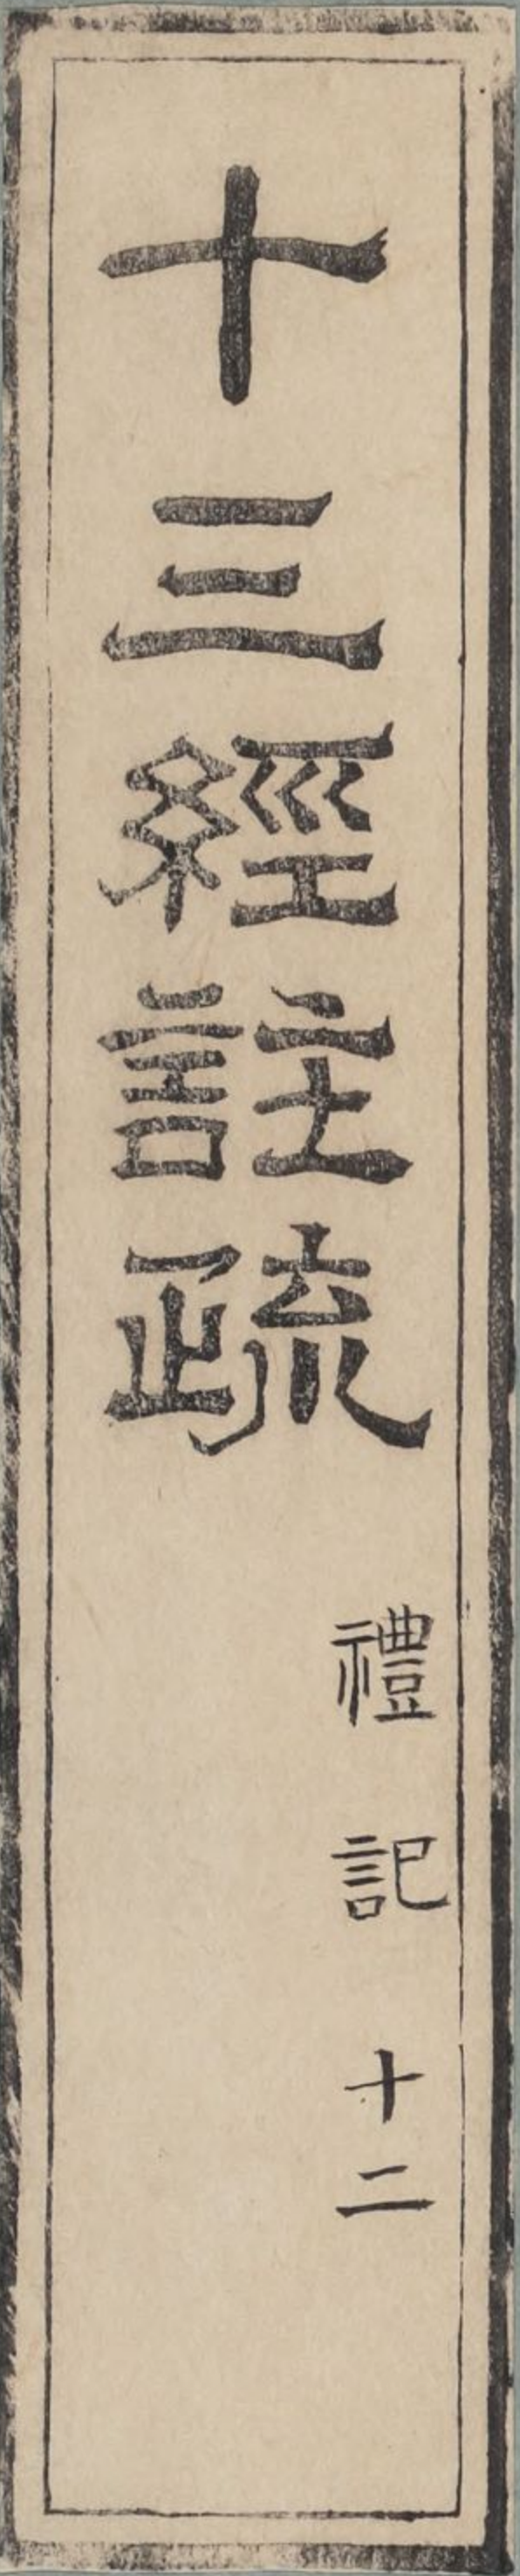 十三經註疏
禮記
十二